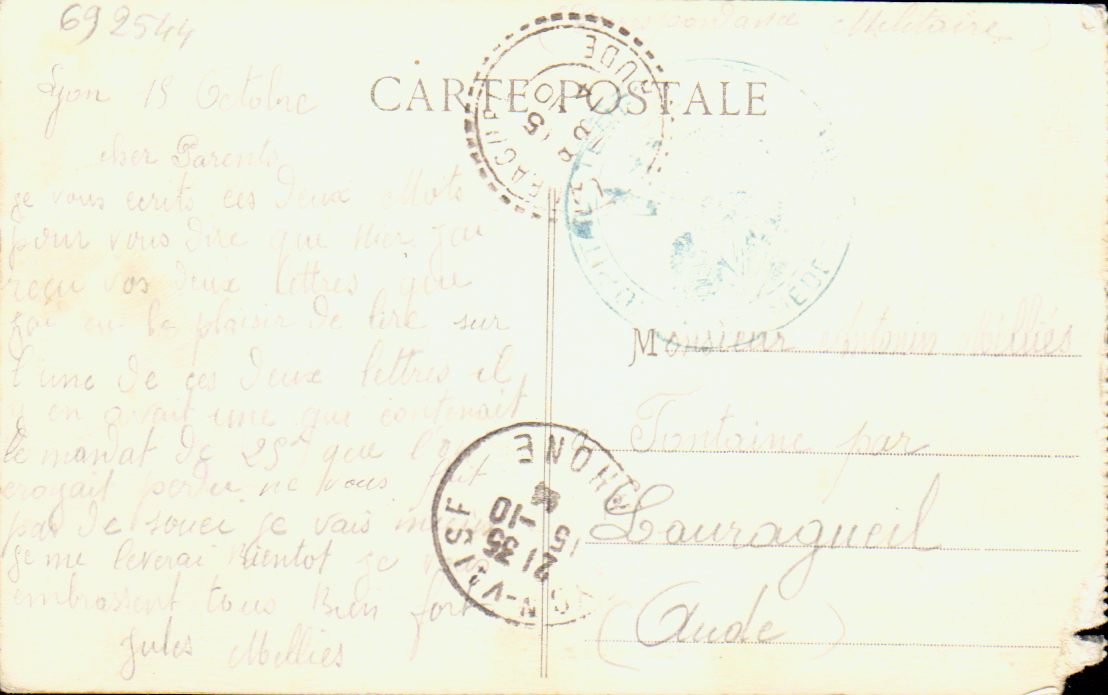 692544
(Correspondance Militaire)
CARTE POSTALE
Lyon 15 Octobre
cher Parents
je vous ecrits ces deux Mots
pour vous dire que Hier j'ai
reçu vos deux lettres que
j'ai eu le plaisir de lire sur
l'une de ces deux lettres il
y en avait une qui contenait
le mandat de 25f que l'on
croyait perdu ne vous fait
pas de souci je vais mieux
je me leverai Bientot je vous
embrassent tous Bien fort
Jules Melliés
Monsieur Antonin Mélliés
Fontaine par
Louragueil
(Aude)
AUDE
RHONE
21 35
15 -10